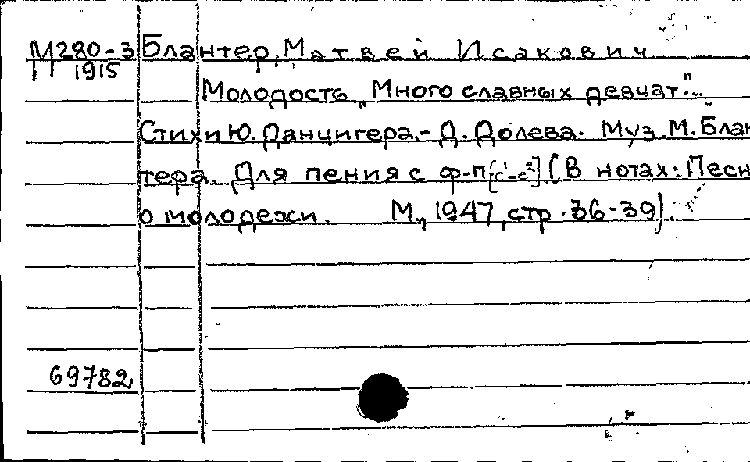 М280-3 Блантер, Матвей Исакович
1915
Молодость „Много славных девчат..."
Стихи Ю. Данцигера - Д. Долева. Муз. М. Блан
тера. Для пения с ф-п [c¹-e²] (В нотах: Песн
о молодежи. М., 1947, стр. 36-39).
69782